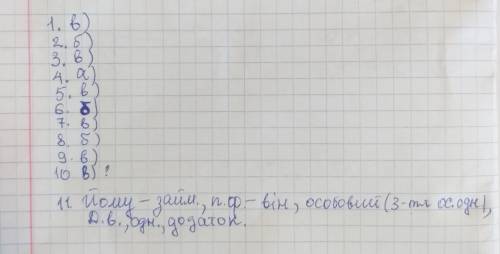 1. в)
2. б)
3. в)
4. а)
5. в)
6. б
7. в)
8. б)
9. в)
10 в)?
11 Йому – займ., п.ф – він, особовий (3-тя ос. одн),
Д.в., одн., додаток.